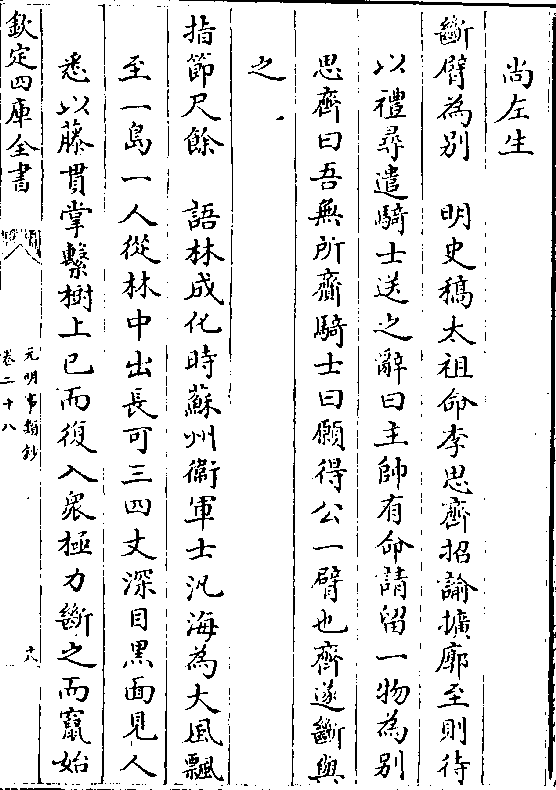 尚左生
斷臂為别　明史稿太祖命李思齊招諭擴廓至則待
以禮尋遣騎士送之辭曰主帥有命請留一物為别
思齊曰吾無所齎騎士曰願得公一臂也齊遂斷與
之
指節尺餘　語林成化時蘇州衞軍士汎海為大風飄
至一島一人從林中出長可三四丈深目黑面見人
悉以藤貫掌繫樹上已而復入眾極力斷之而竄始
欽定四庫全書
元明事類鈔
卷二十八
十六